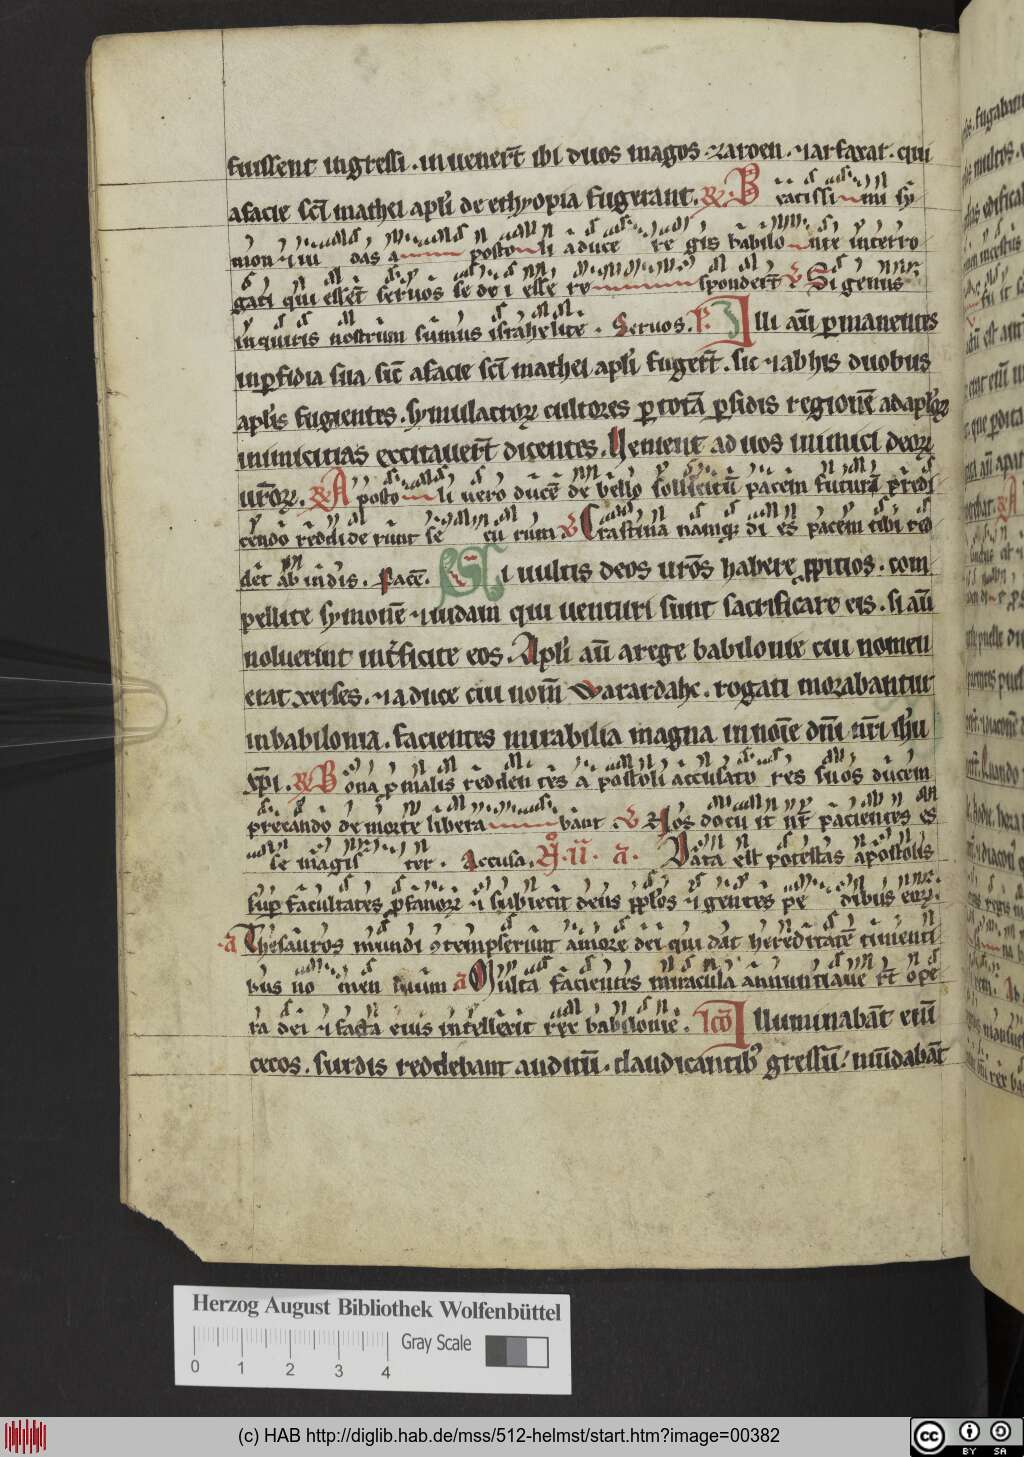 fuissent ingressi . invener̄t ibi duos magos zaroen . ⁊ arfaxat . qui
afacie sc̄i mathei apl̄i de ethyopia fugerant. R B eatissimi sy
mon ⁊ iudas apostoli a duce regis babilonie interro
gati qui essēt servos se dei esse responderūt V Si genus
inquitis nostrum sumus israhelite . Servos. P. Illi aūt permanentes
inperfidia sua sic̄ afacie sc̄i mathei apl̄i fuger̄t . sic ⁊ abhis duobus
apl̄is fugientes . symulacrorꝝ cultores p totā psidis regionē ad apl̄orꝝ
inimicitias excitaver̄t dicentes . Venient ad vos inimici deorꝝ
ur̄orꝝ . R A postoli vero ducē de bello sollicitū pacem futurā predi
cendo reddiderunt securum. V Crastina namqꝫ dies pacem tibi red
det ab indis . Pacē. Si vultis deos ur̄os habere ppitios . com
pellite symonē ⁊ iudam qui venturi sunt sacrificare eis . si aū
noluerint int̄ficite eos . Apl̄i aū arege babilonie cui nomen
erat xerses . ⁊ aduce cui nom̄ Warardahc . rogati morabantur
inbabilonia . facientes mirabilia magna innoīe dn̄i nr̄i ih̄u
xp̄i . R B ona p malis reddentes apostoli accusatores suos ducem
precando de morte liberabant . V Nos docuit nr̄ pacientes es
se magister . Accusa. ꝶ. ii. a. Data est potestas apostolis
sup facultates pfanorꝝ ⁊ subiecit deus pplos ⁊ gentes pedibus eorꝝ.
a Thesauros mundi ꝯtempserunt amore dei qui dat hereditatē timenti
bus nomen suum a Multa facientes miracula annuntiaverūt ope
ra dei ⁊ facta eius intellexit rex babilonie . Lc̄o Illuminabāt eni̅
cecos . surdis reddebant auditū . claudicantibꝰ gressū . mūdabāt
Herzog August Bibliothek Wolfenbüttel
Gray Scale
0 1 2 3 4
(c) HAB http://diglib.hab.de/mss/512-helmst/start.htm?image=00382
cc BY SA